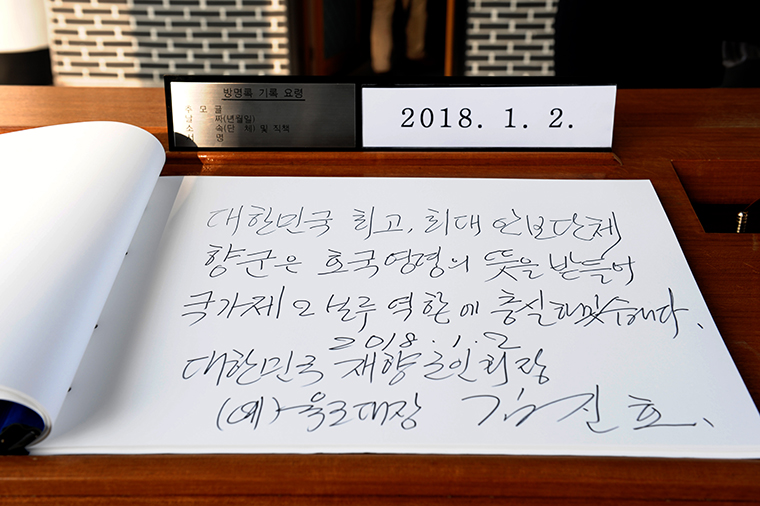 방명록 기록 요령
추 모 글
날 짜(년월일)
소 속(단 체) 및 직책
서 명
2018. 1. 2.
대한민국 최고, 최대 안보단체
향군은 호국영령의 뜻을 받들어
국가제2보루 역할에 충실하겠습니다.
2018. 1. 2
대한민국 재향군인회장
(예) 육군대장 김진호.